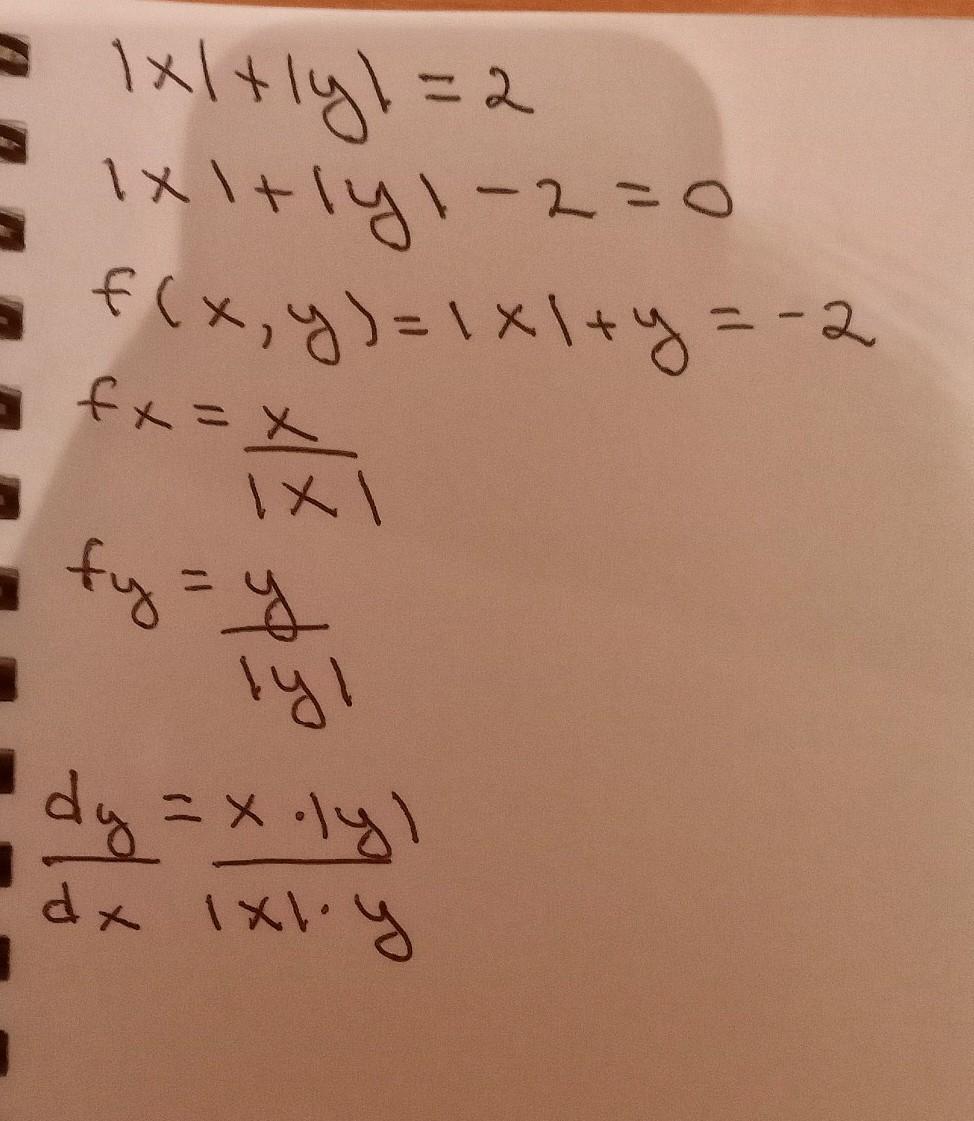 |x|+|y| = 2
|x|+|y|-2=0
f(x,y)=|x|+y=-2
fx = x/|x|
fy = y/|y|
dy/dx = x·|y|/|x|·y